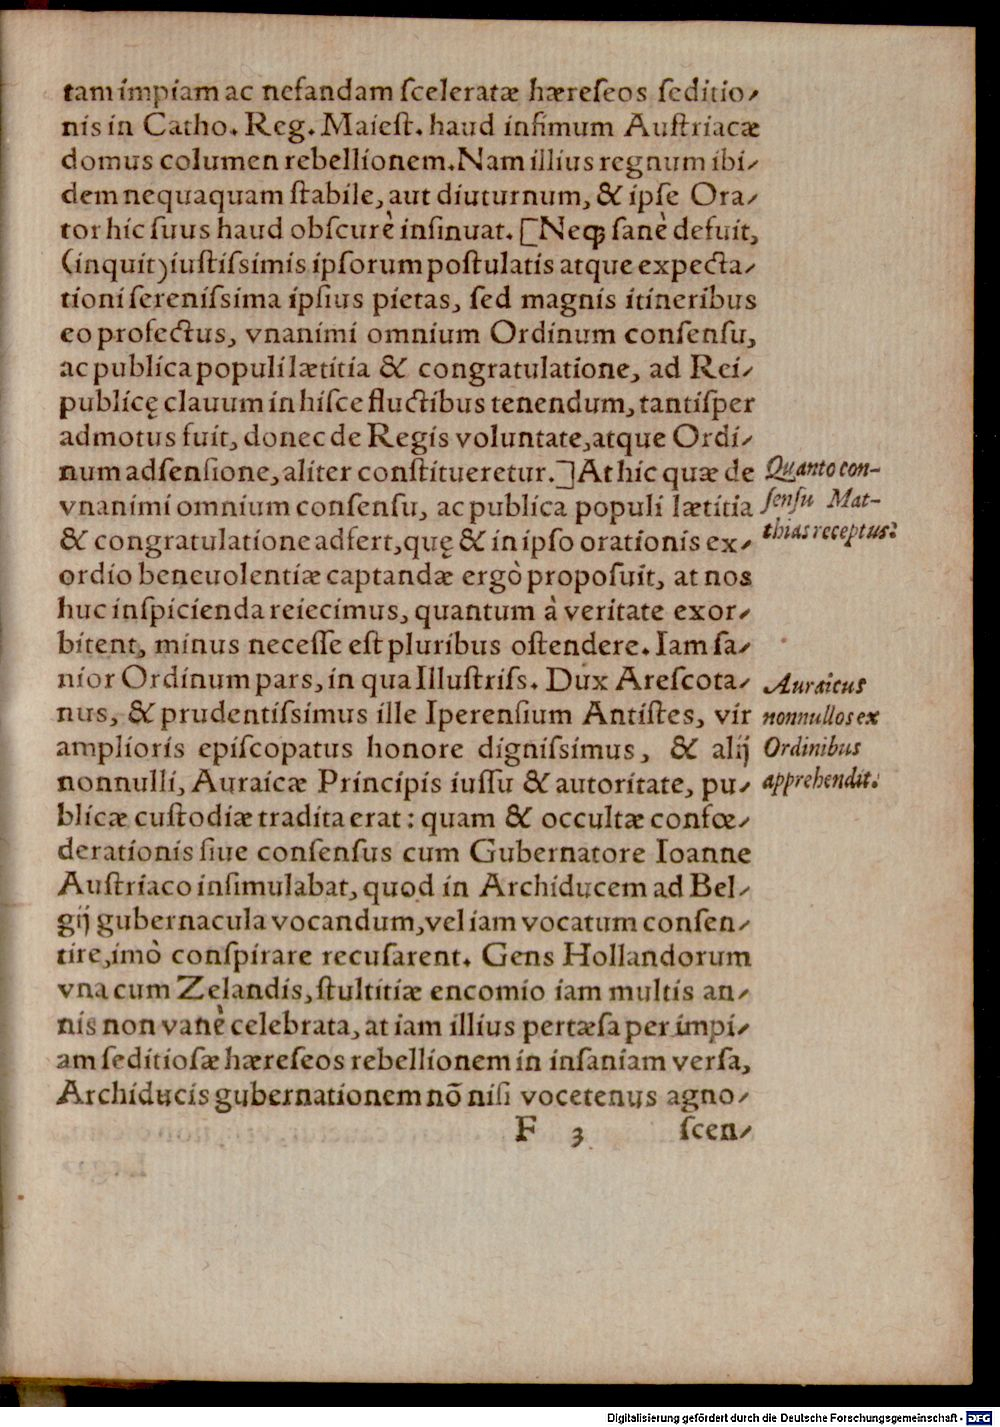 tam impiam ac nefandam ſceleratæ hæreſeos ſeditio⸗
nis in Catho. Reg. Maieſt. haud infimum Auſtriacæ
domus columen rebellionem. Nam illius regnum ibi⸗
dem nequaquam ſtabile, aut diuturnum, & ipſe Ora⸗
tor hic ſuus haud obſcurè inſinuat. [Neqꝫ ſanè defuit,
(inquit) iuſtiſsimis ipſorum poſtulatis atque expecta⸗
tioni ſereniſsima ipſius pietas, ſed magnis itineribus
eo profectus, vnanimi omnium Ordinum conſenſu,
ac publica populi lætitia & congratulatione, ad Rei⸗
publicę clauum in hiſce fluctibus tenendum, tantiſper
admotus fuit, donec de Regis voluntate, atque Ordi⸗
num adſenſione, aliter conſtitueretur.] At hic quæ de
vnanimi omnium conſenſu, ac publica populi lætitia
& congratulatione adfert, quę & in ipſo orationis ex⸗
ordio beneuolentiæ captandæ ergò propoſuit, at nos
huc inſpicienda reiecimus, quantum à veritate exor⸗
bitent, minus neceſſe eſt pluribus oſtendere. Iam ſa⸗
nior Ordinum pars, in qua Illuſtriſs. Dux Areſcota⸗
nus, & prudentiſsimus ille Iperenſium Antiſtes, vir
amplioris epiſcopatus honore digniſsimus, & alij
nonnulli, Auraicæ Principis iuſſu & autoritate, pu⸗
blicæ cuſtodiæ tradita erat: quam & occultæ confœ⸗
derationis ſiue conſenſus cum Gubernatore Ioanne
Auſtriaco inſimulabat, quod in Archiducem ad Bel⸗
gij gubernacula vocandum, vel iam vocatum conſen⸗
tire, imò conſpirare recuſarent. Gens Hollandorum
vna cum Zelandis, ſtultitiæ encomio iam multis an⸗
nis non vanè celebrata, at iam illius pertæſa per impi⸗
am ſeditioſæ hæreſeos rebellionem in inſaniam verſa,
Archiducis gubernationem nõ niſi vocetenus agno⸗
F 3 ſcen⸗
Quanto con-
ſenſu Mat-
thias receptus?
Auraicus
nonnullos ex
Ordinibus
apprehendit.
Digitalisierung gefördert durch die Deutsche Forschungsgemeinschaft - DFG